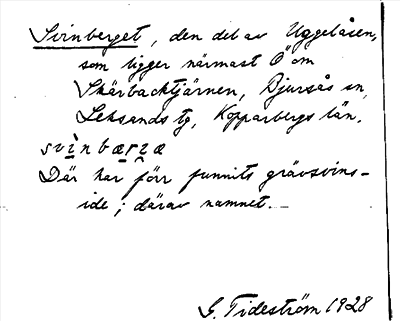 Svinberget, den del av Uggelåsen,
som ligger närmast Ö om
Skärbacktjärnen, Djursås sn,
Leksands tg, Kopparbergs län.
svìnbærɪæ
Där har förr funnits grävsvins-
ide; därav namnet.
G. Tideström 1928